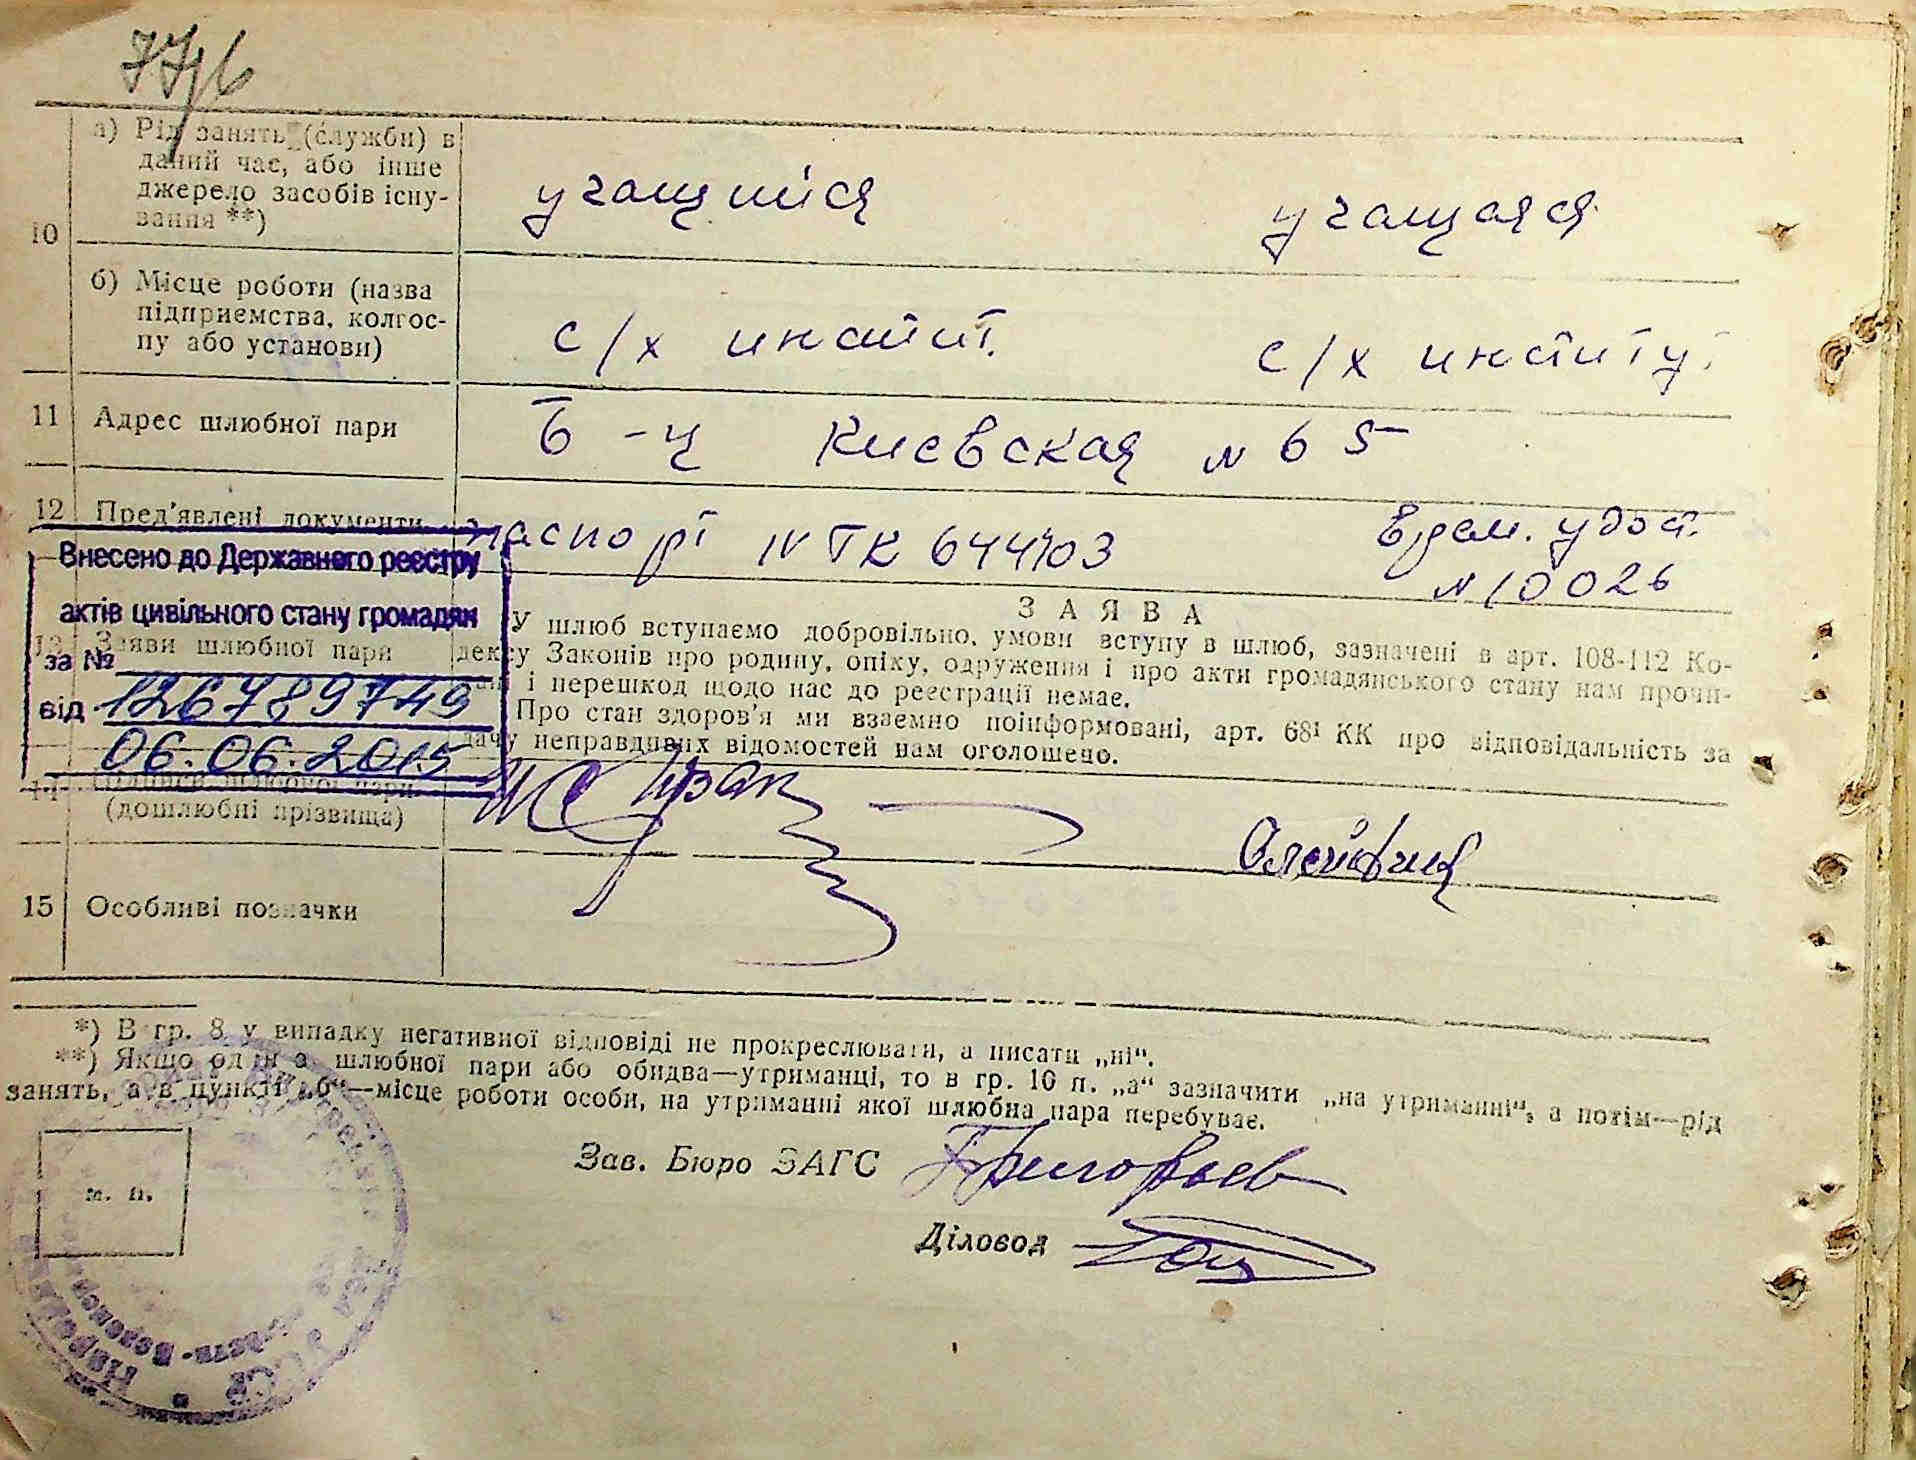 10
а) Рід занять (служби) в
даний час, або інше
джерело засобів існу-
вання **)
учащийся учащаяся
б) Місце роботи (назва
підприємства, колгос-
пу або установи)
с/х инстит. с/х институт
11 Адрес шлюбної пари
Б-ц Киевская № 65
12 Пред'явлені документи
паспорт Врем. удост.
№ 10026
Внесено до Державного реєстру
актів цивільного стану громадян
за №
від 126789749
06.06.2015
13 Заяви шлюбної пари
ЗАЯВА
У шлюб вступаємо добровільно, умови вступу в шлюб, зазначені в арт. 108-112 Ко-
дексу Законів про родину, опіку, одруження і про акти громадянського стану нам прочи-
тані і перешкод щодо нас до реєстрації немає.
Про стан здоров'я ми взаємно поінформовані, арт. 68¹ КК про відповідальність за
дачу неправдивих відомостей нам оголошено.
14 Підписи шлюбної пари
(дошлюбні прізвища)
15 Особливі позначки
*) В гр. 8 у випадку негативної відповіді не прокреслювати, а писати „ні“.
**) Якщо один з шлюбної пари або обидва—утриманці, то в гр. 10 п. „а“ зазначити „на утриманні“, а потім—рід
занять, а в пункті „б“—місце роботи особи, на утриманні якої шлюбна пара перебуває.
Зав. Бюро ЗАГС Григорьев
м. п.
Діловод